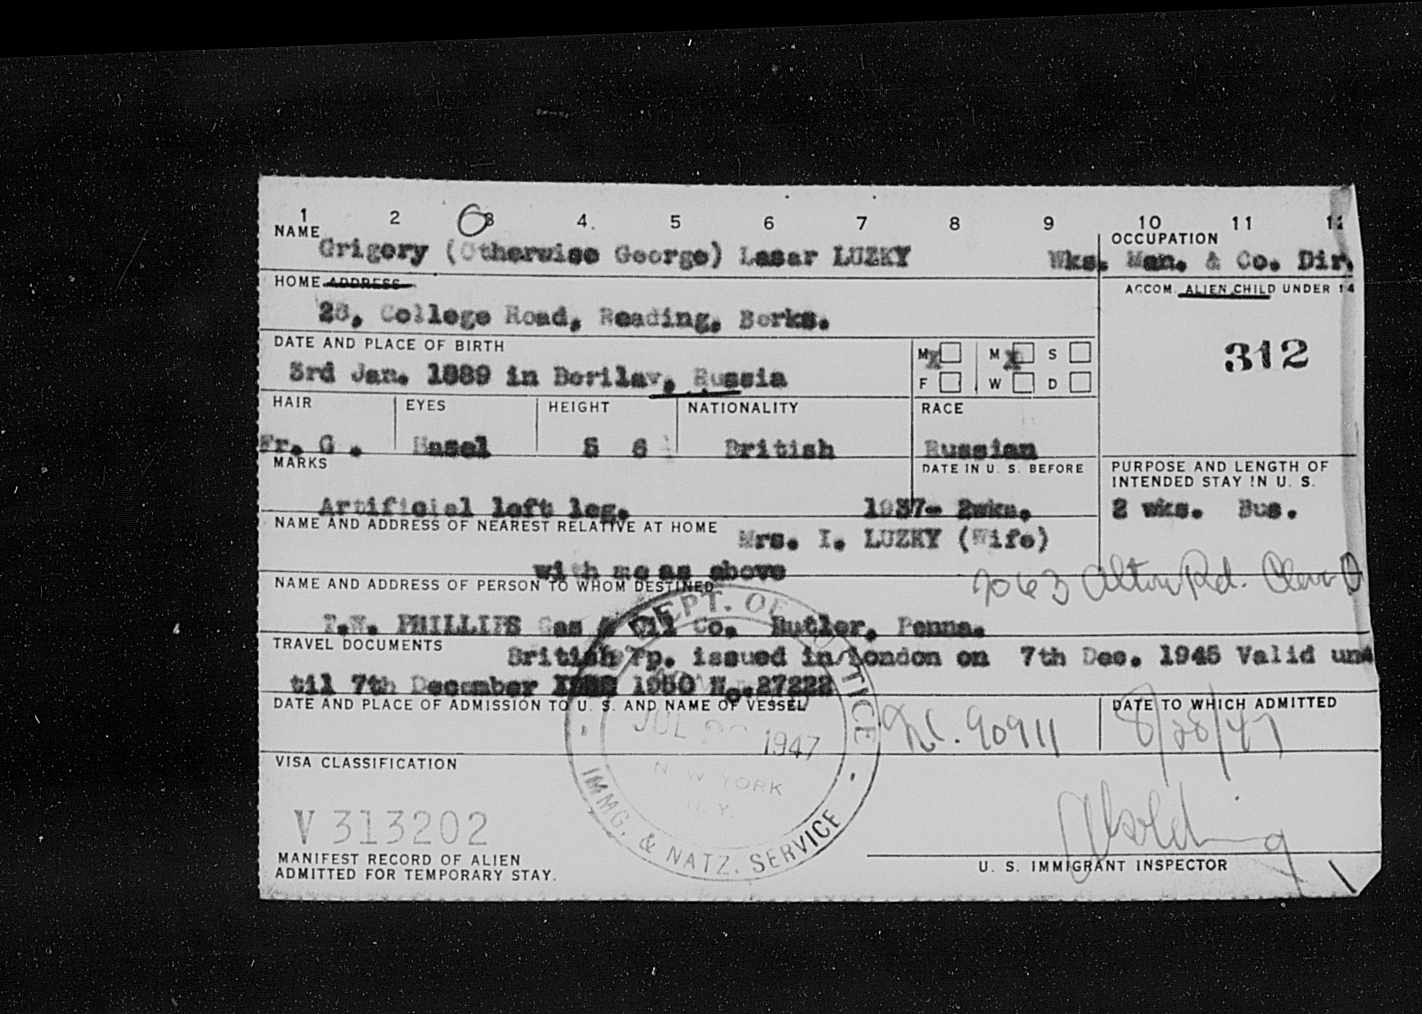 1 2 3 4. 5 6 7 8 9 10 11
NAME OCCUPATION
Grigory (Otherwise George) Lasar LUZKY Wks. Man. & Co. Dir.
HOME ADDRESS ACCOM. ALIEN CHILD UNDER 14
College Road, Reading, Berks.
DATE AND PLACE OF BIRTH M M S
3rd Jan. 1889 in Berislav, Russia X X 312
F W D
HAIR EYES HEIGHT NATIONALITY RACE
Fr. G. Hasel 5 6 British Russian
MARKS DATE IN U. S. BEFORE PURPOSE AND LENGTH OF
INTENDED STAY IN U. S.
Artificial left leg. 1937- 2wks. 2 wks. Bus.
NAME AND ADDRESS OF NEAREST RELATIVE AT HOME Mrs. I. LUZKY (Wife)
with me as above
NAME AND ADDRESS OF PERSON TO WHOM DESTINED 2063 Alton Rd. Cleve O
T.W. PHILLIPS Gas & Oil Co. Butler, Penna.
TRAVEL DOCUMENTS British Pp. issued in London on 7th Dec. 1945 Valid un-
til 7th December 1950 No.27222
DATE AND PLACE OF ADMISSION TO U. S. AND NAME OF VESSEL DATE TO WHICH ADMITTED
90911 8/28/47
DEPT. OF JUSTICE
JUL 1947
NEW YORK
N. Y.
IMMG. & NATZ. SERVICE
VISA CLASSIFICATION
V 313202
MANIFEST RECORD OF ALIEN
ADMITTED FOR TEMPORARY STAY.
U. S. IMMIGRANT INSPECTOR